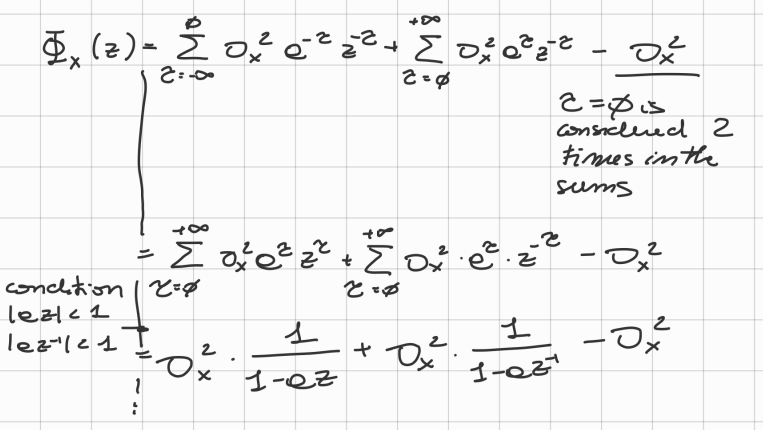 Φₓ(z) = Σ_{τ=-∞}^{0} σₓ² e^{-τ} z^{-τ} + Σ_{τ=0}^{+∞} σₓ² e^{τ} z^{-τ} - σₓ²
τ = 0 is
considered 2
times in the
sums
= Σ_{τ=0}^{+∞} σₓ² e^{τ} z^{τ} + Σ_{τ=0}^{+∞} σₓ² · e^{τ} · z^{-τ} - σₓ²
condition
|ez| < 1
|ez⁻¹| < 1
= σₓ² · 1/(1-ez) + σₓ² · 1/(1-ez⁻¹) - σₓ²
⋮